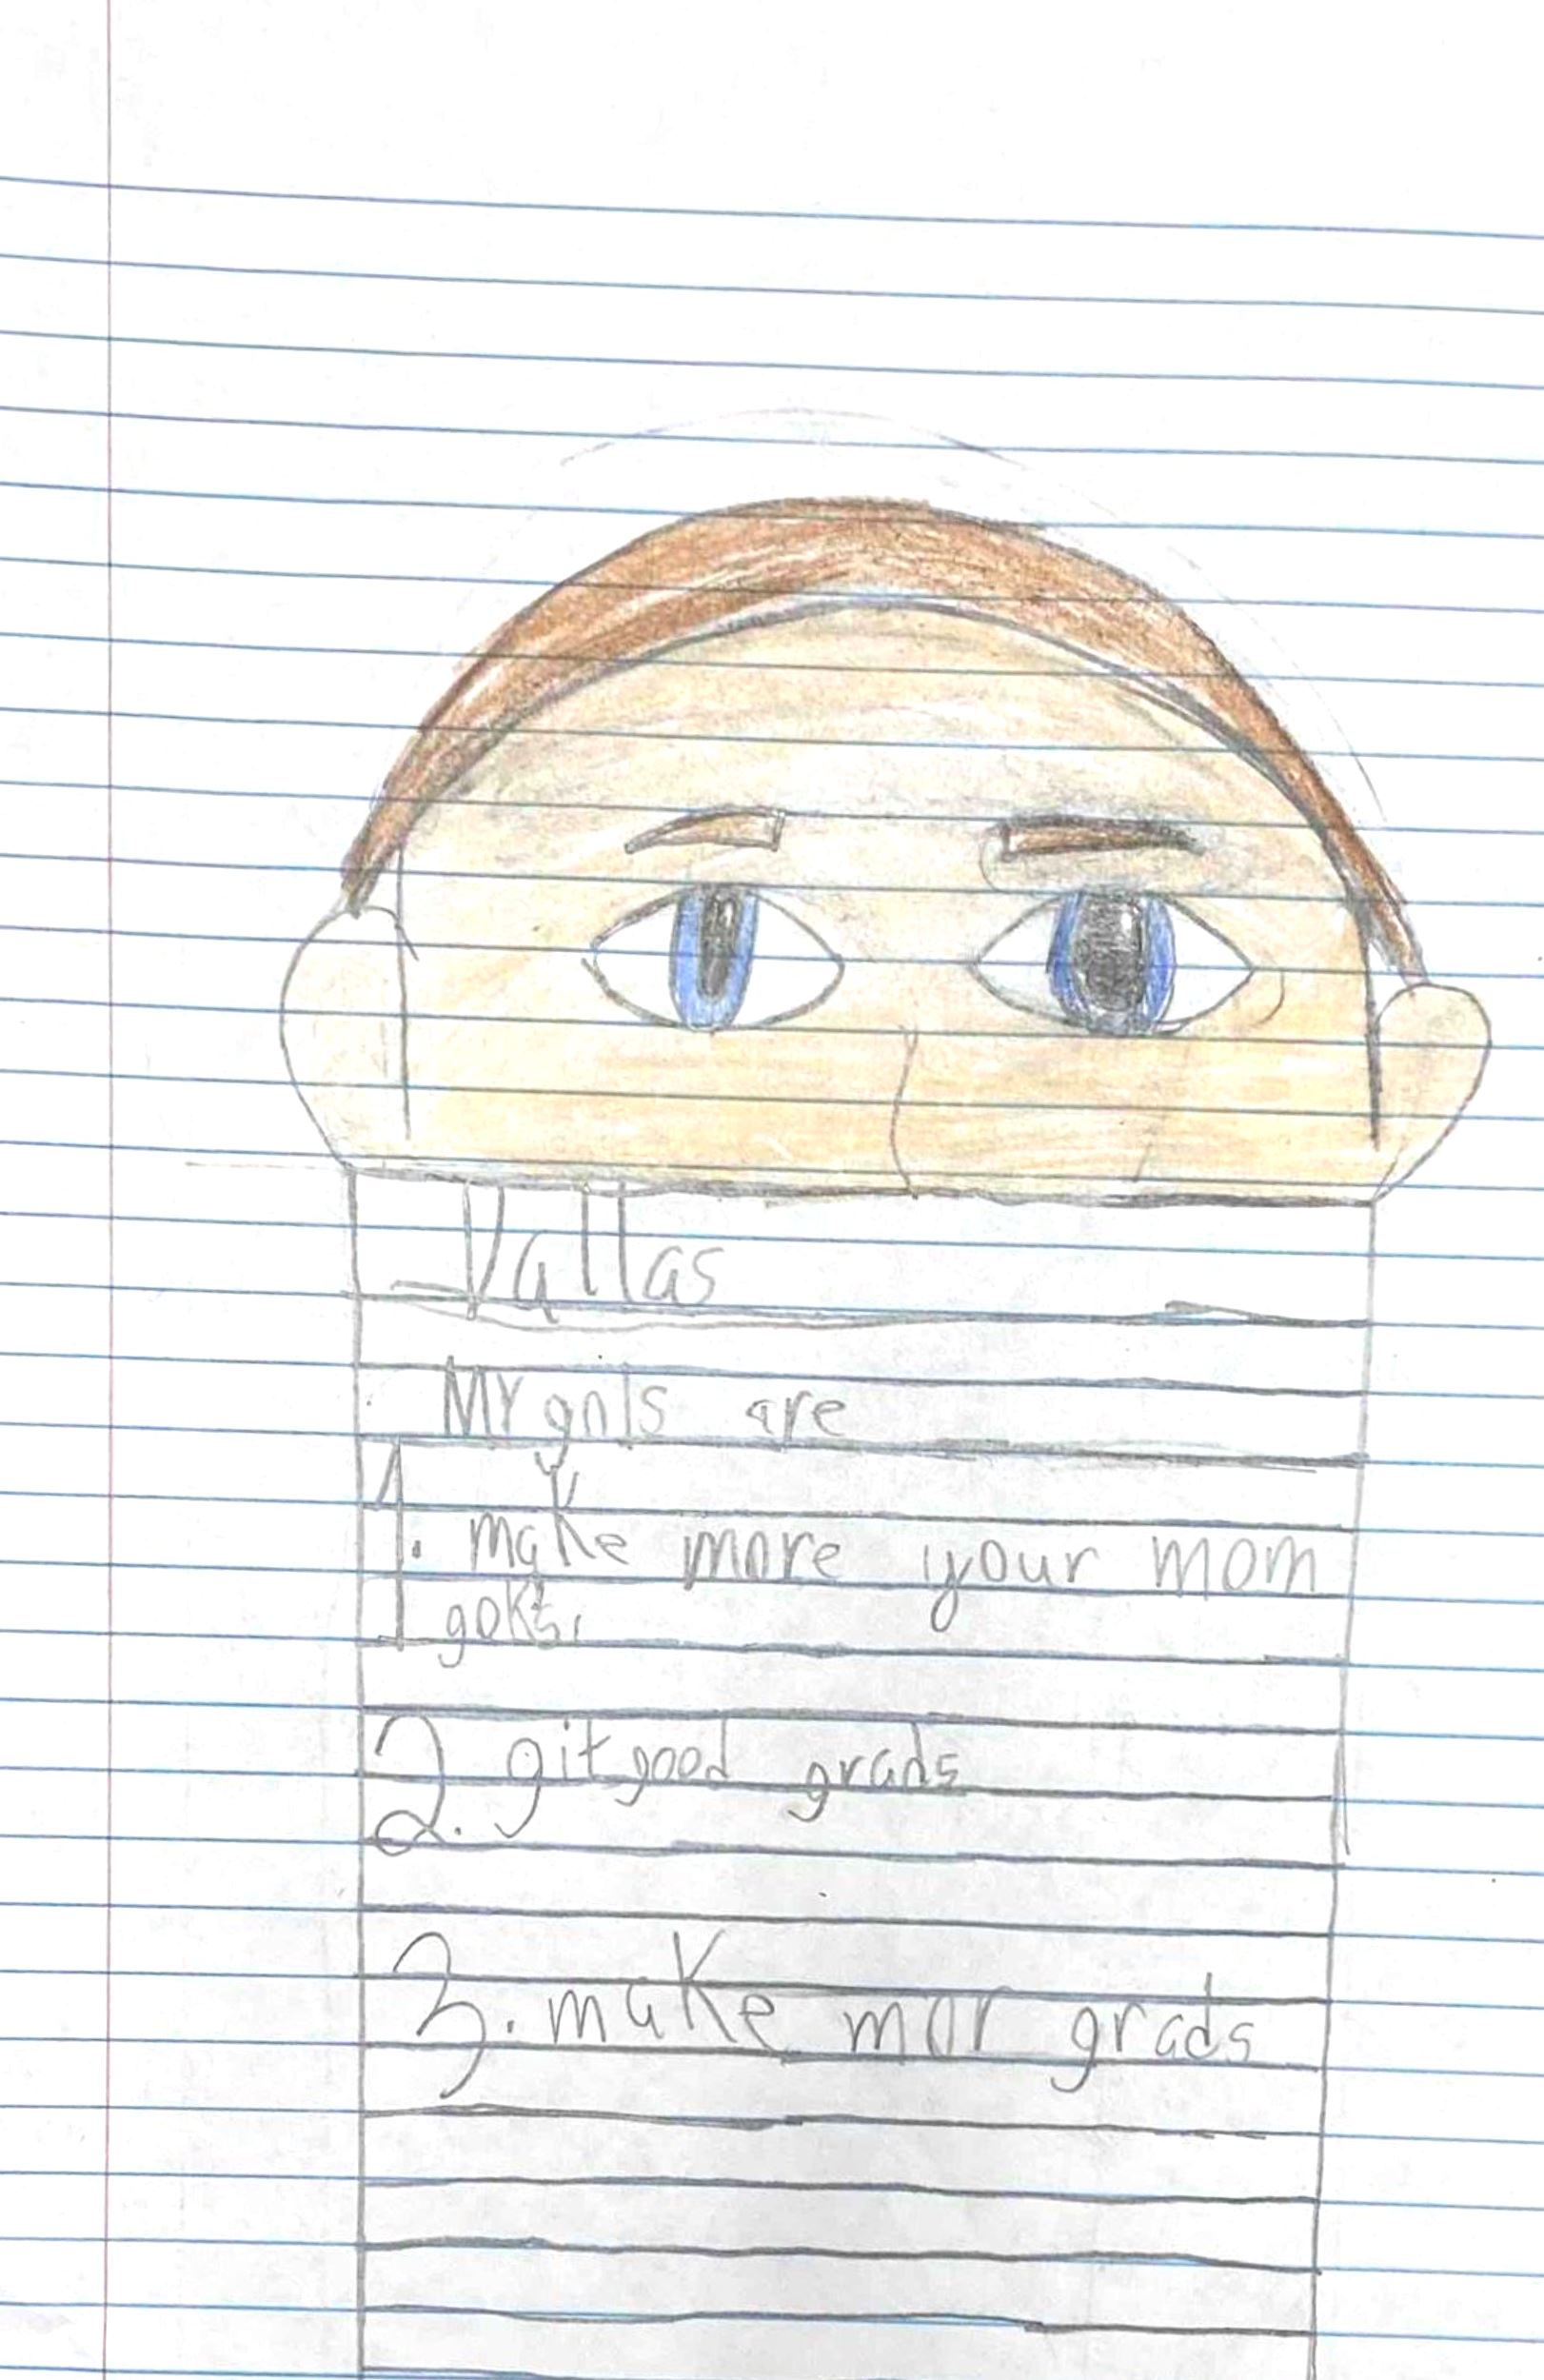 Dallas
My gols are
1. make more your mom
goks.
2. git good grads
3. make mor grads